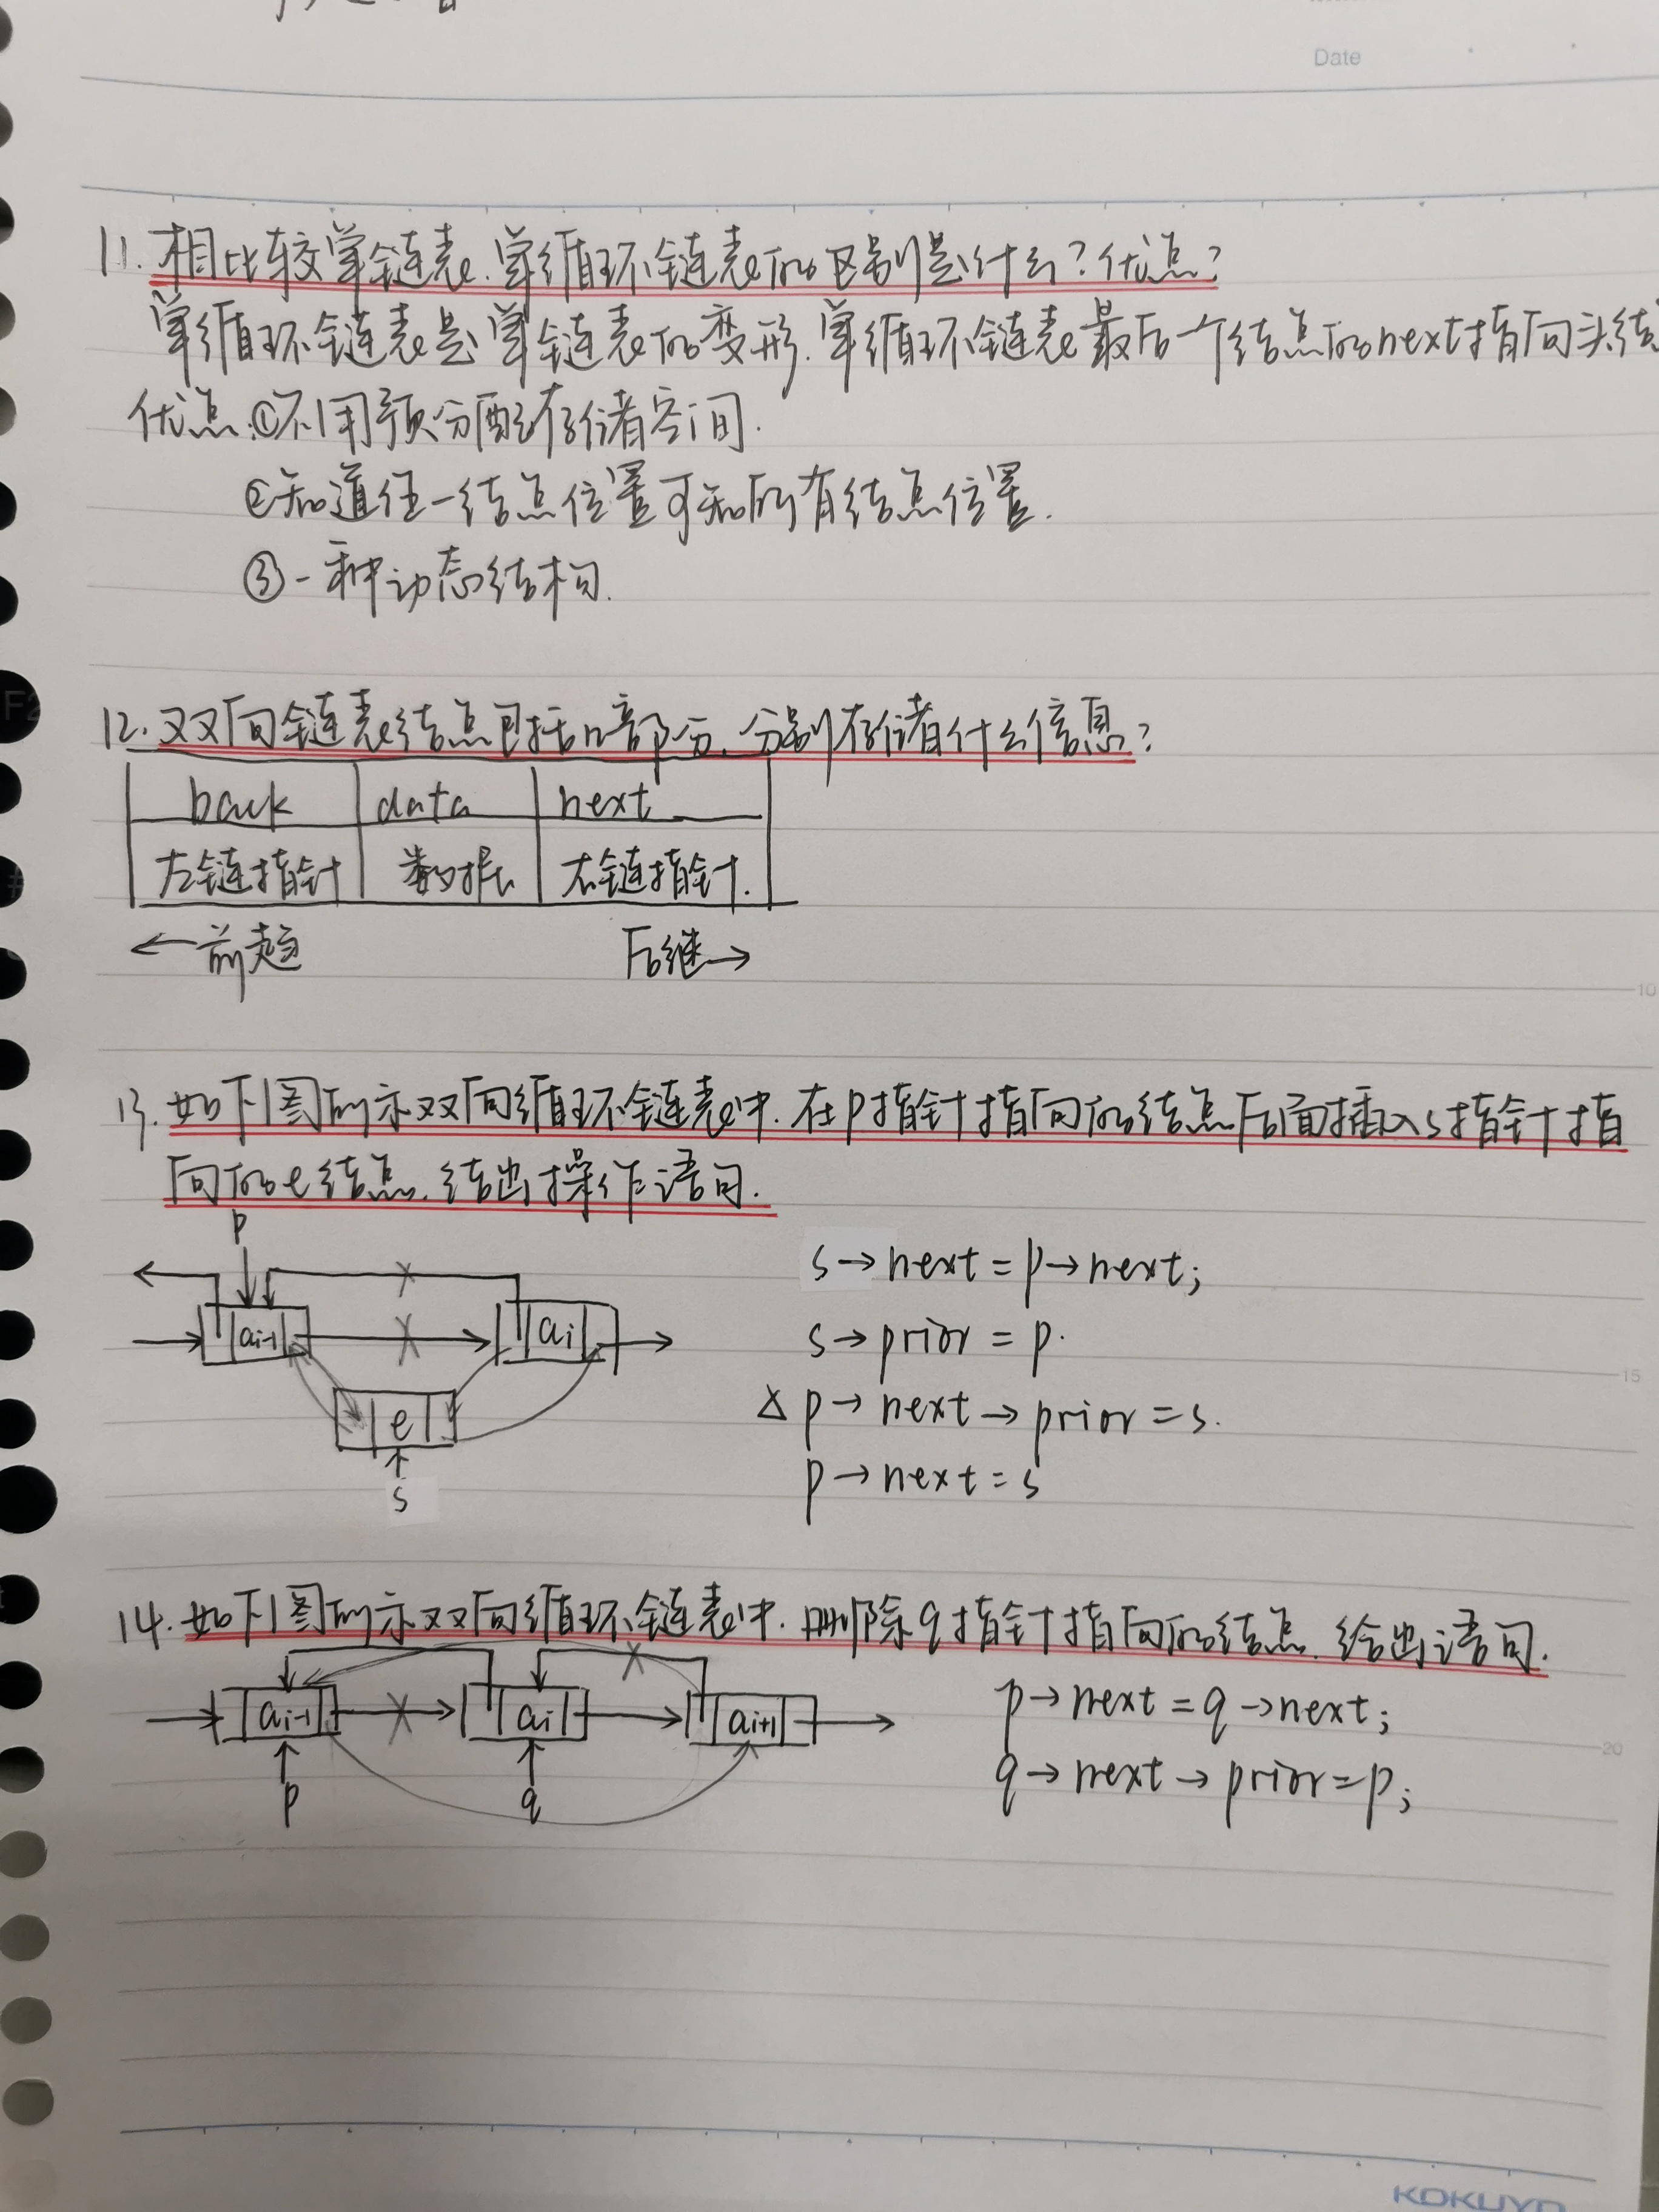 Date
11. 相比较单链表.单循环链表的区别是什么?优点?
单循环链表是单链表的变形.单循环链表最后一个结点的next指向头结
优点:①不用预分配存储空间.
②知道任一结点位置可知所有结点位置.
③一种动态结构.
12. 双向链表结点包括几部分.分别存储着什么信息?
back data next
左链指针 数据 右链指针.
←前趋 后继→
13. 如下图所示双向循环链表中.在p指针指向的结点后面插入s指针指
向的e结点.给出操作语句.
p
s→next=p→next;
ai-1 ai
s→prior=p.
△ p→next→prior=s.
e
p→next=s
s
14. 如下图所示双向循环链表中.删除q指针指向的结点.给出语句.
ai-1 ai ai+1
p→next=q→next;
p q
q→next→prior=p;
10
15
20
KOKUYO